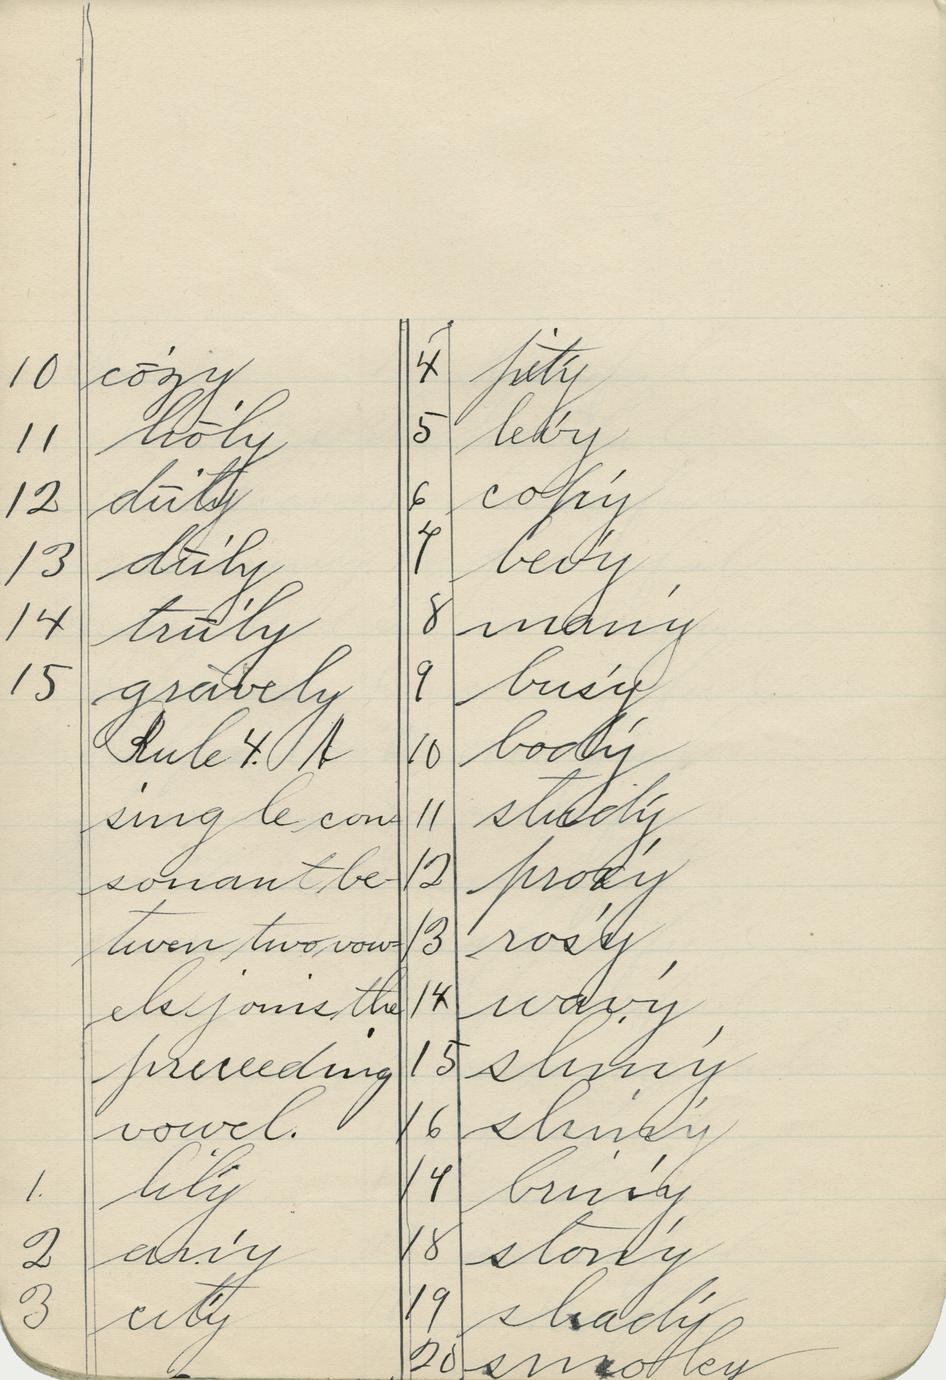 10 cōzy
11 hōly
12 dūty
13 dūly
14 trūly
15 grāvely
Rule 4. A
single con-
sonant be-
twen two vow-
els joins the
preceeding
vowel.
1. lily
2 any
3 city
4 pity
5 levy
6 copy
7 bevy
8 many
9 busy
10 body
11 study
12 proxy
13 rosy
14 wavy
15 slimy
16 shiny
17 briny
18 stony
19 shady
20 smokey